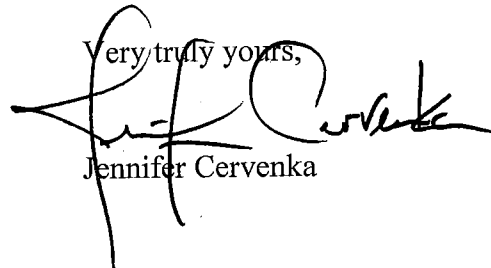 Very truly yours,
Jennifer Cervenka
Jennifer Cervenka